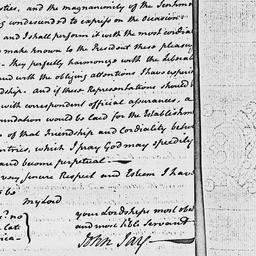 sties, and the magnanimity of the Sentime
ing condescended to express on the Occasion
and I shall perform it with the most cordial
to make known to the President these pleasing
they perfectly harmonize with the Liberal
and with the obliging attentions I have experie
dship. and if these Representations should be
with correspondent official assurances, a
oundation would be laid for the Establishme
of that Friendship and Cordiality betwe
ntries, which I pray God may speedily
and become perpetual—
very sincere Respect and Esteem I have
to be
my Lord
your Lordships most obed
and most h'ble Servant
John Jay—
no
late
ica-